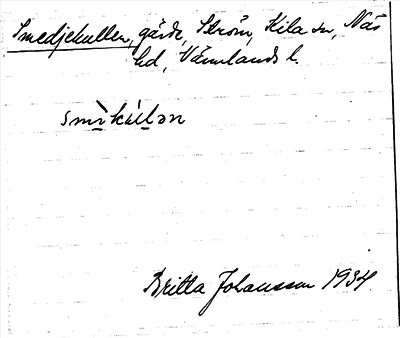 Smedjekullen, gärde, Ström, Kila sn, Näs
hd, Värmlands l.
smìkúlən
Britta Johansson 1934.